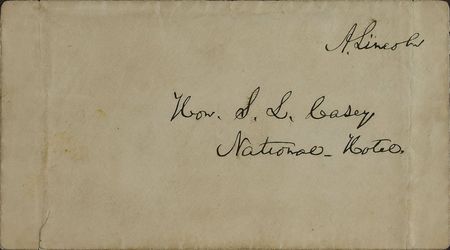 A. Lincoln
Hon. S. L. Casey
National Hotel.